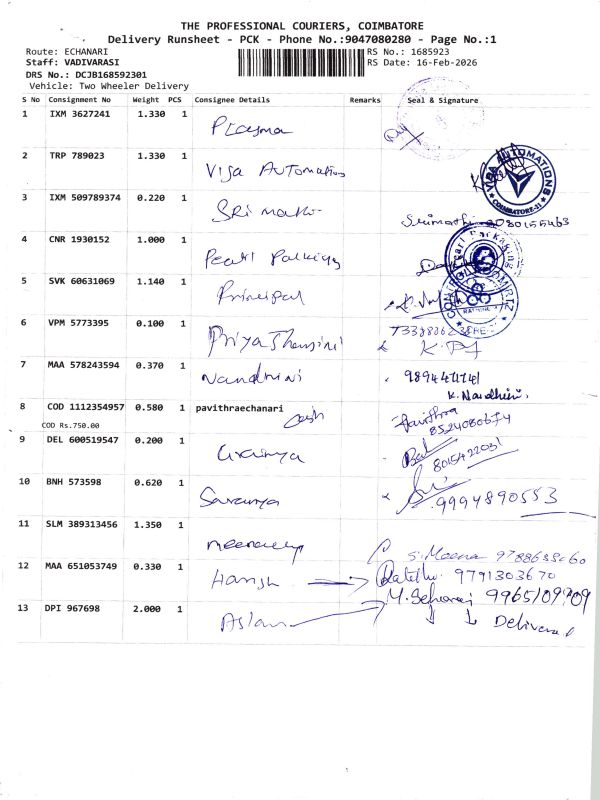 THE PROFESSIONAL COURIERS, COIMBATORE
Delivery Runsheet - PCK - Phone No.:9047080280 - Page No.:1
Route: ECHANARI RS No.: 1685923
Staff: VADIVARASI RS Date: 16-Feb-2026
DRS No.: DCJB168592301
Vehicle: Two Wheeler Delivery
S No Consignment No Weight PCS Consignee Details Remarks Seal & Signature
1 IXM 3627241 1.330 1 Plasma
2 TRP 789023 1.330 1 Visa Automations
VISA AUTOMATIONS COIMBATORE-21
3 IXM 509789374 0.220 1 Sri
4 CNR 1930152 1.000 1 Pearl Packings
Pearl Packaging
5 SVK 60631069 1.140 1 Principal
6 VPM 5773395 0.100 1 Priya
7 MAA 578243594 0.370 1 Nandhini
K. Nandhini
8 COD 1112354957 0.580 1 pavithraechanari cash Pavithra
COD Rs.750.00 8524080674
9 DEL 600519547 0.200 1 8015422031
10 BNH 573598 0.620 1 Saranya 9994890553
11 SLM 389313456 1.350 1 S. Meena
12 MAA 651053749 0.330 1 Harish 9791303670
13 DPI 967698 2.000 1 Aslam M. 9965109709
Delivered